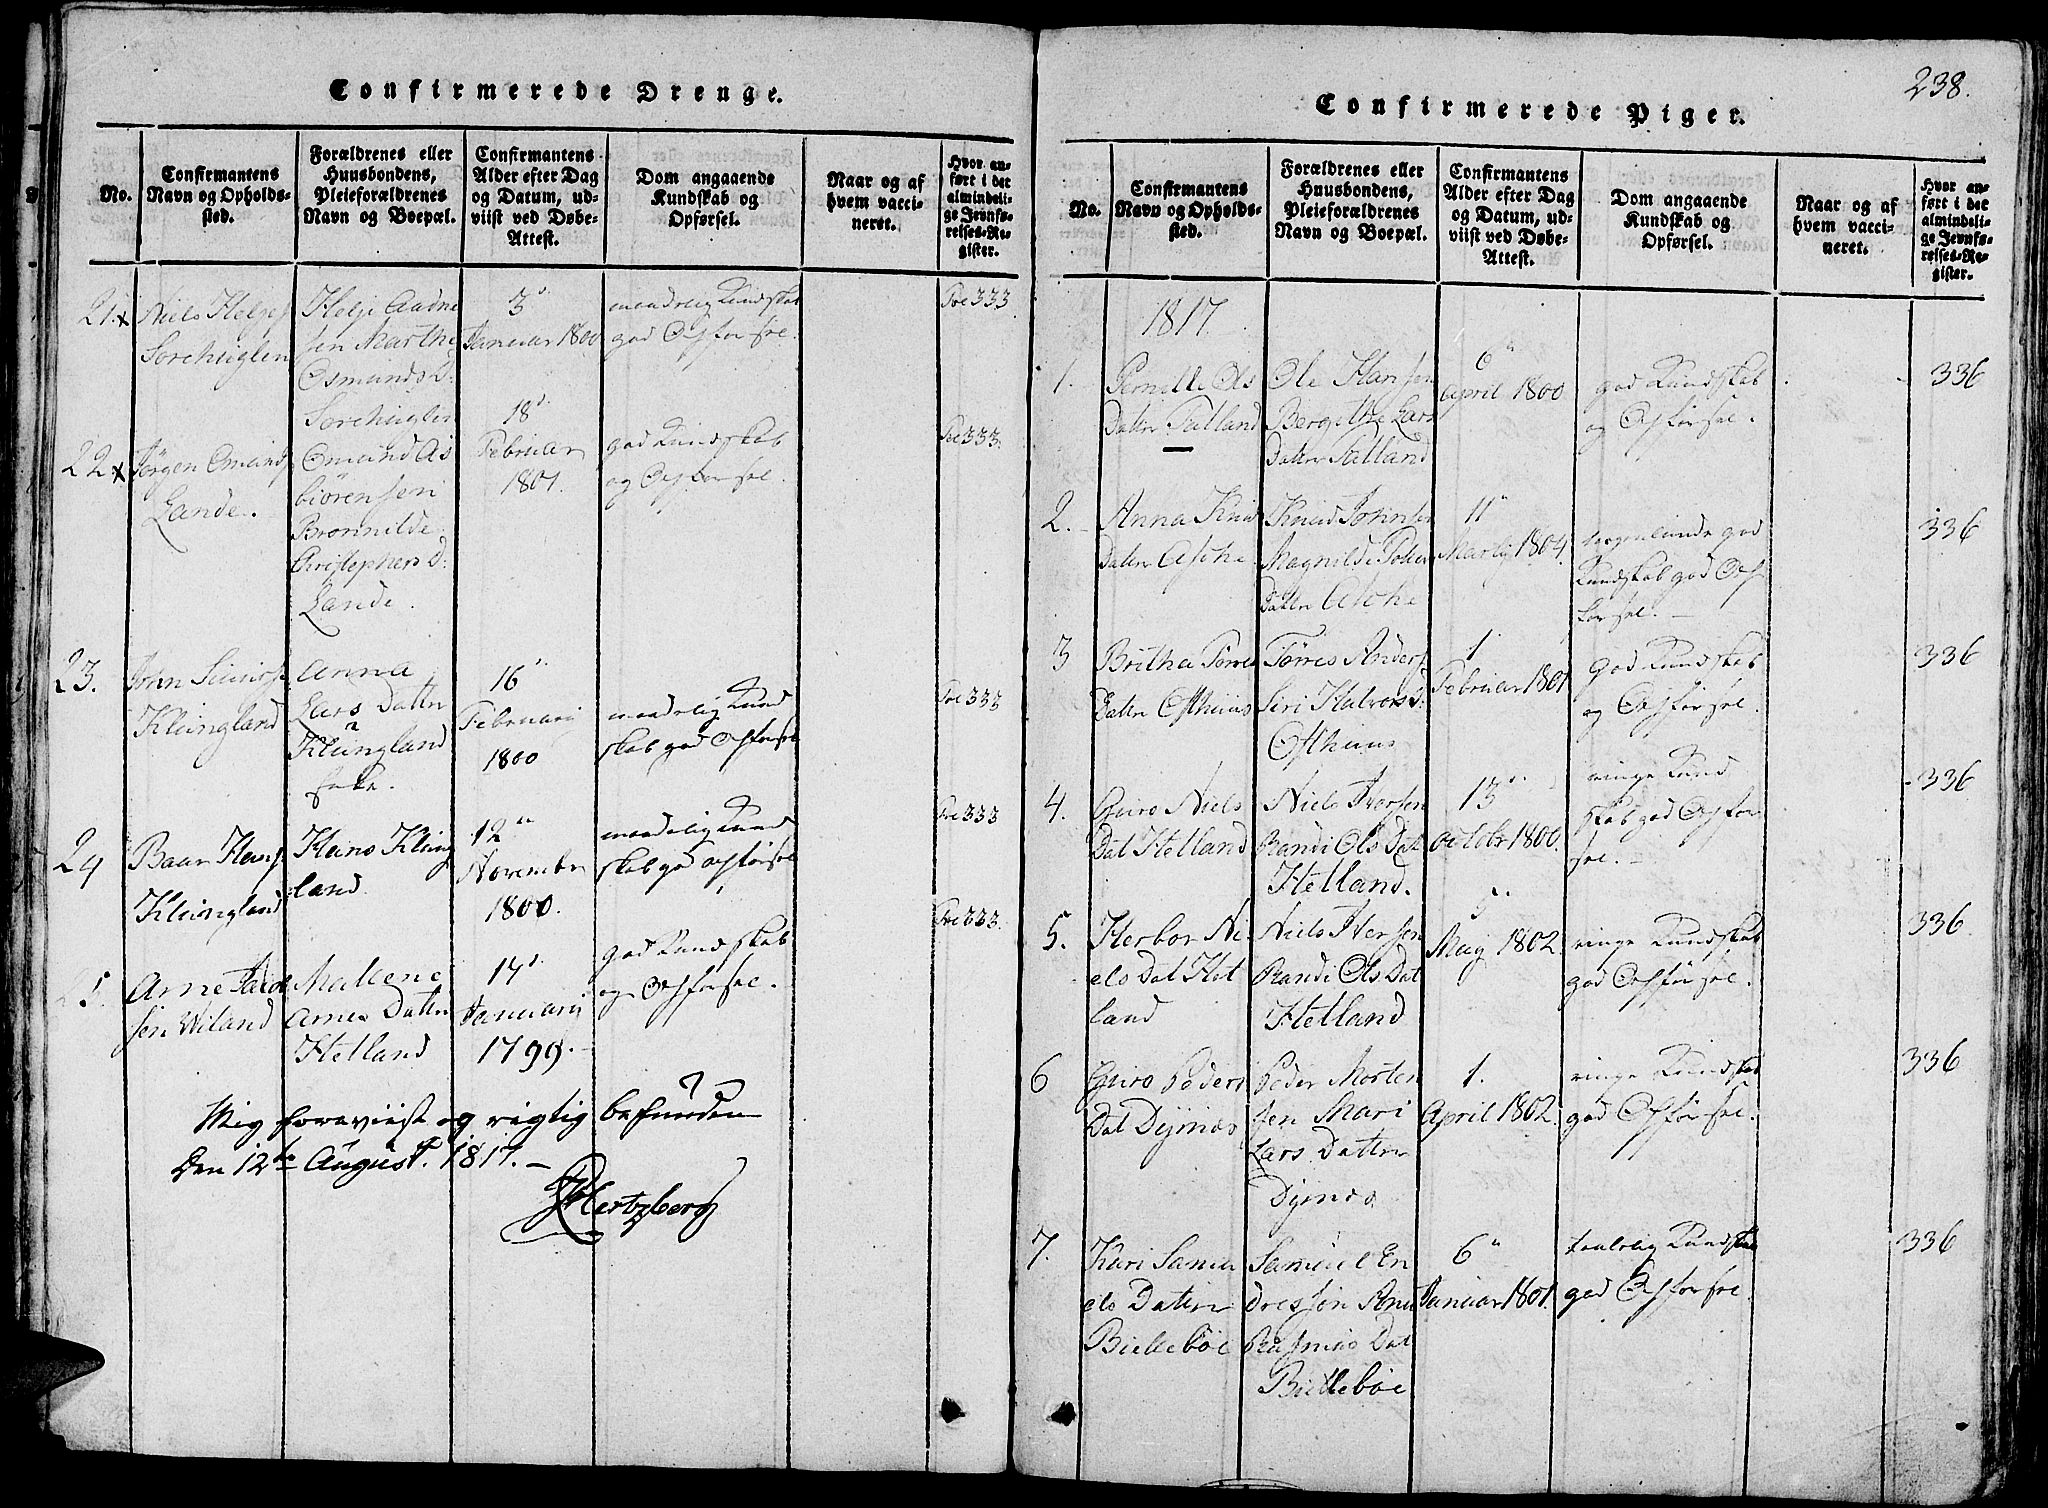 Confirmerede Drenge.
No.
Confirmantens
Navn og Opholds-
sted.
Forældrenes eller
Huusbondens,
Pleieforældrenes
Navn og Boepæl.
Confirmantens
Alder efter Dag
og Datum, ud-
viist ved Døbe-
Attest.
Dom angaaende
Kundskab og
Opførsel.
Naar og af
hvem vacci-
neret.
Hvor an-
ført i det
almindeli-
ge Jevnfø-
relses-Re-
gister.
21.
Niels Helges
Sørehuglen
Helje Aadne
sen Marthe
Osmunds D:
Sørehuglen
3
Januar 1800
maadelig Kundskab
god Opførsel.
Pve 333
22
Jørgen Omund
Lande.
Omund As
biörensen
Bronnilde
Christophers D:
Lande.
18
Februar
1801.
god Kundskab
og Opførsel.
Pve 333.
23.
John
Klungland
Anna
Lars Dattr
Klungland
16
Februarij
1800
maadelig Kund
skab god Opførsel
Pve 333
24
Baar Hans
Klungland
Hans Klung
land
12
November
1800.
maadelig Kund
skab god Opførsel
Pve 333
25.
Arne Jacob
sen Wiland
Mallene
Arnes Dattr
Hetland
14
Januarij
1799.
god Kundskab
og Opførsel.
Pve 333.
Mig foreviist og rigtig befunden
Den 12te August. 1817.
Hertzberg
238.
Confirmerede Piger.
No.
Confirmantens
Navn og Opholds-
sted.
Forældrenes eller
Huusbondens,
Pleieforældrenes
Navn og Boepæl.
Confirmantens
Alder efter Dag
og Datum, ud-
viist ved Døbe-
Attest.
Dom angaaende
Kundskab og
Opførsel.
Naar og af
hvem vacci-
neret.
Hvor an-
ført i det
almindeli-
ge Jevnfø-
relses-Re-
gister.
1817.
1.
Pernille Ols
Dattr Tatland
Ole Hansen
Bergithe Lars
Dattr Tatland
6
April 1800
god Kundskab
og Opførsel.
336
2.
Anna Knud
Dattr
Knud Johnsen
Magnilde
Dattr
11
Martij 1804.
god
Kundskab god Op
førsel.
336
3
Britha Tørres
Dattr Østhuus
Tørres Anders
Siri Halvors D:
Østhuus
1
Februar 1801
god Kundskab
og Opførsel.
336
4.
Guro Niels
Dat Hetland
Niels Iversen
Randi Ols Dat
Hetland.
13
Octobr 1800.
ringe Kund
skab god Opfør
sel.
336
5.
Herbor Ni
els Dat Het
land
Niels Iversen
Randi Ols Dat
Hetland
5
Maij 1802.
ringe Kundskab
god Opførsel.
336
6
Guro Peders
Dat Dijmes
Peder Morten
sen Mari
Lars Dattr
Dymes
1.
April 1802.
ringe Kundskab
god Opførsel.
336
7.
Kari Samu
els Dattr
Bielleböe
Samuel En
dresson Ane
Rasmus Dat
Bielleböe
6
Januar 1801.
taalelig Kundskab
god Opførsel.
336